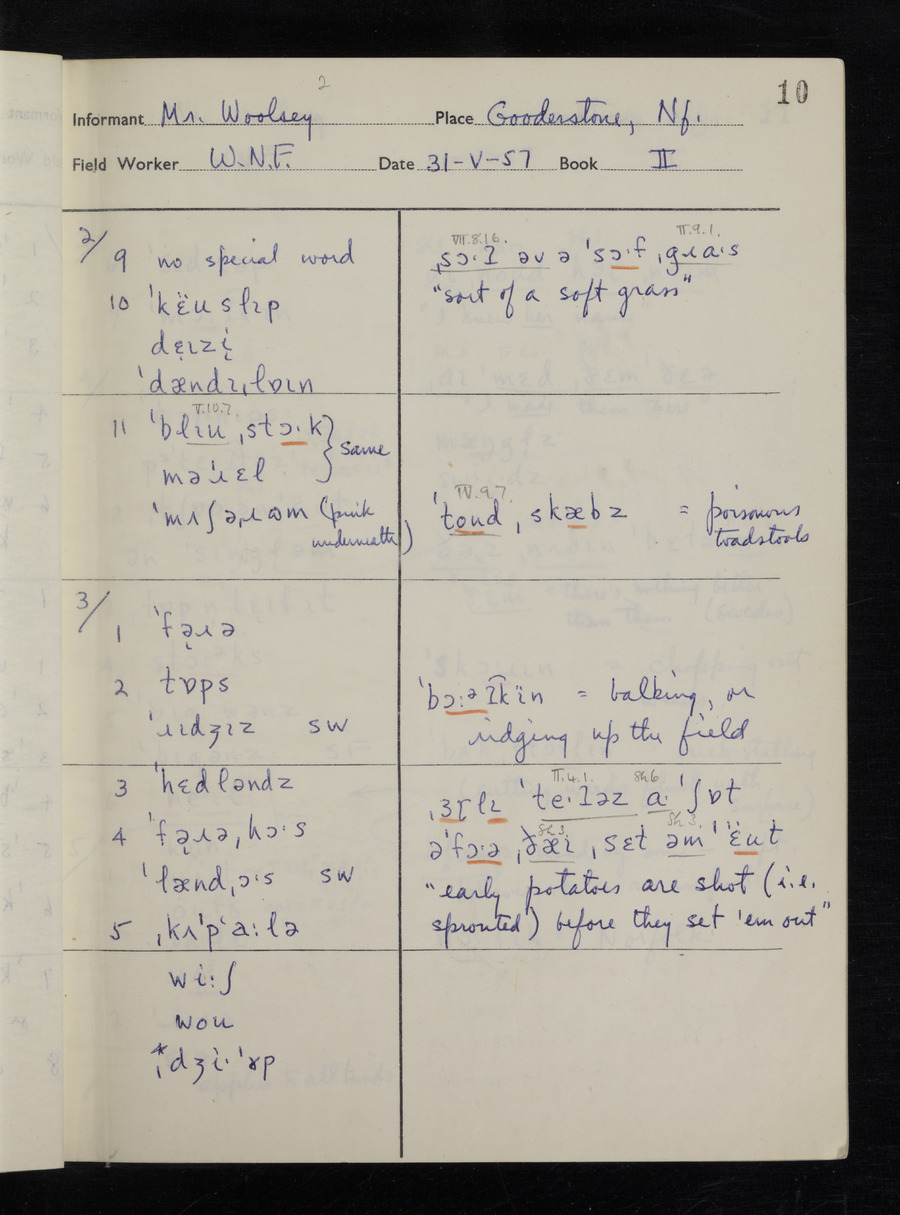 2
10
Informant Mr. Woolsey Place Gooderstone, Nf.
Field Worker W.N.F. Date 31-V-57 Book II
2/
9 no special word
10 ˈkëuslɩp
dɛ̣ɩzi̜
ˈdændɩˌlɒɩn
VII.8.16. II.9.1.
əv ə ˈsɔ·f ˌgɹa·s
"sort of a soft grass"
V.10.7.
11 ˈblɩuˌstɔ·k } same
məˈɹɛl
ˈmʌʃəˌɹɷm (pink
underneath)
IV.9.7.
ˈtoudˌskæbz = poisonous
toadstools
3/
1 ˈfə̣ɹə
2 tɒps
ˈɹɩdʒɩz SW
= balking, or
ridging up the field
3 ˈhɛdləndz
4 ˈfə̣ɹəˌhɔ·s
ˈlændˌɔ·s SW
5 ˌkʌˈpʻa:lə
II.4.1. Sh6
ˈʃɒt
Sh3. Sh3.
əˈfɔ·ə ˌðæi ˌsɛt əm ˈëut
"early potatoes are shot (i.e.
sprouted) before they set 'em out"
wi:ʃ
wou
*ˌdʒi·ˈɤp